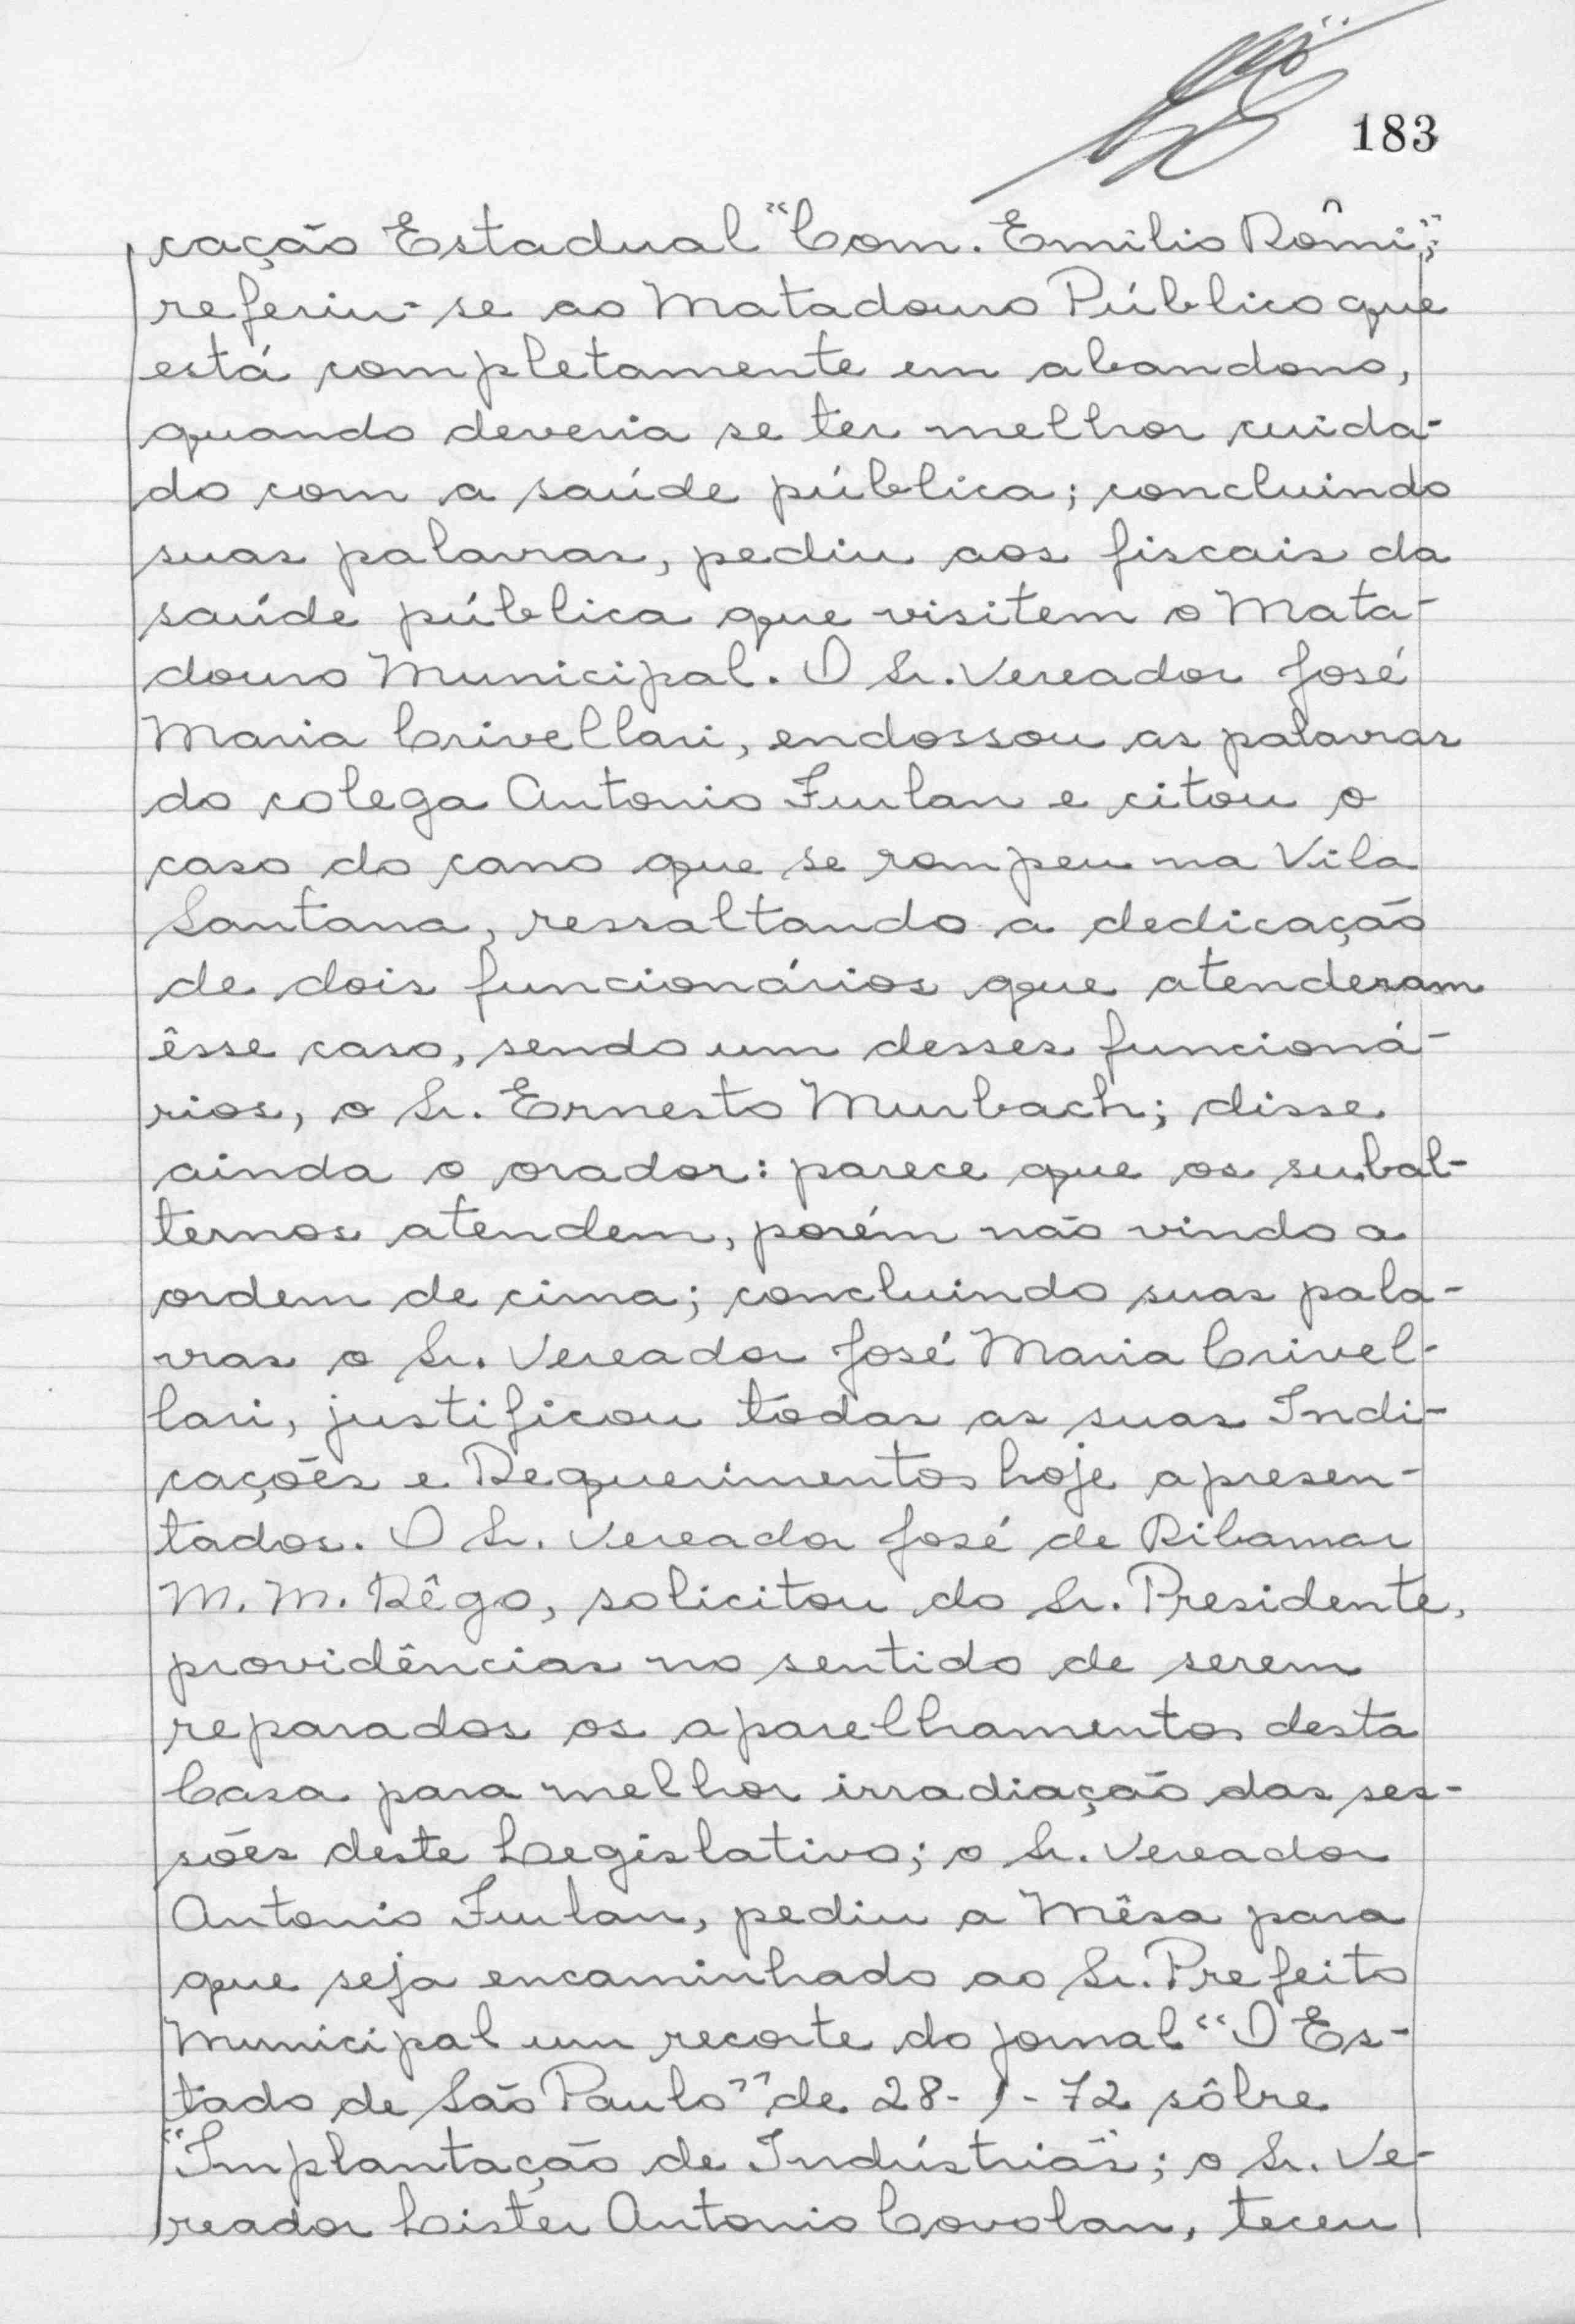 183
cação Estadual "Com. Emilio Rômi";
referiu-se ao Matadouro Público que
está completamente em abandono,
quando deveria se ter melhor cuida-
do com a saúde pública; concluindo
suas palavras, pediu aos fiscais da
saúde pública que visitem o Mata-
douro Municipal. O Sr. Vereador José
Maria Crivellari, endossou as palavras
do colega Antonio Furlan e citou o
caso do cano que se rompeu na Vila
Santana, ressaltando a dedicação
de dois funcionários que atenderam
êsse caso, sendo um desses funcioná-
rios, o Sr. Ernesto Murbach; disse
ainda o orador: parece que os subal-
ternos atendem, porém não vindo a
ordem de cima; concluindo suas pala-
vras o Sr. Vereador José Maria Crivel-
lari, justificou tôdas as suas Indi-
cações e Requerimentos hoje apresen-
tados. O Sr. Vereador José de Ribamar
M. M. Rêgo, solicitou do Sr. Presidente,
providências no sentido de serem
reparados os aparelhamentos desta
Casa para melhor irradiação das ses-
sões deste Legislativo; o Sr. Vereador
Antonio Furlan, pediu a Mêsa para
que seja encaminhado ao Sr. Prefeito
Municipal um recorte do jornal "O Es-
tado de São Paulo" de 28-1-72 sôbre
"Implantação de Indústrias"; o Sr. Ve-
reador Lister Antonio Covolan, teceu